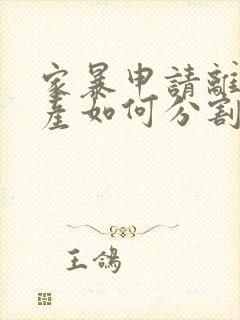 家暴申請離
産如何分割
王鴿